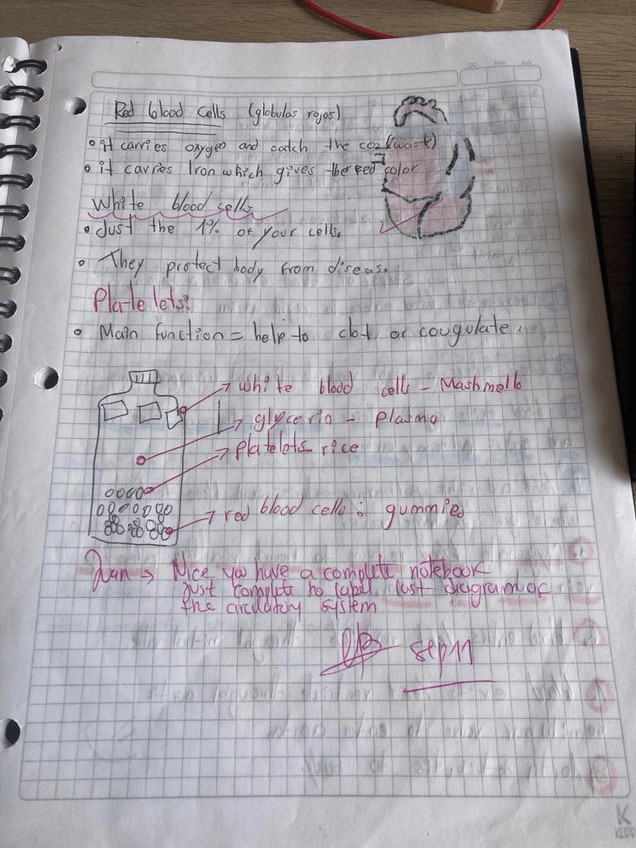 Red blood cells (globulos rojos)
• it carries oxygen and catch the co2 (wast)
• it carries Iron which gives the red color
White blood cells
• Just the 1% of your cells.
• They protect body from diseas.
Platelets:
• Main function = help to clot or cougulate.
→ white blood cells - Mashmello
→ glycerin - plasma
→ platelets rice
→ red blood cells : gummies
Juan → Nice you have a complete notebook
Just complete to label last diagram of
the circulatory system
sep 11
K